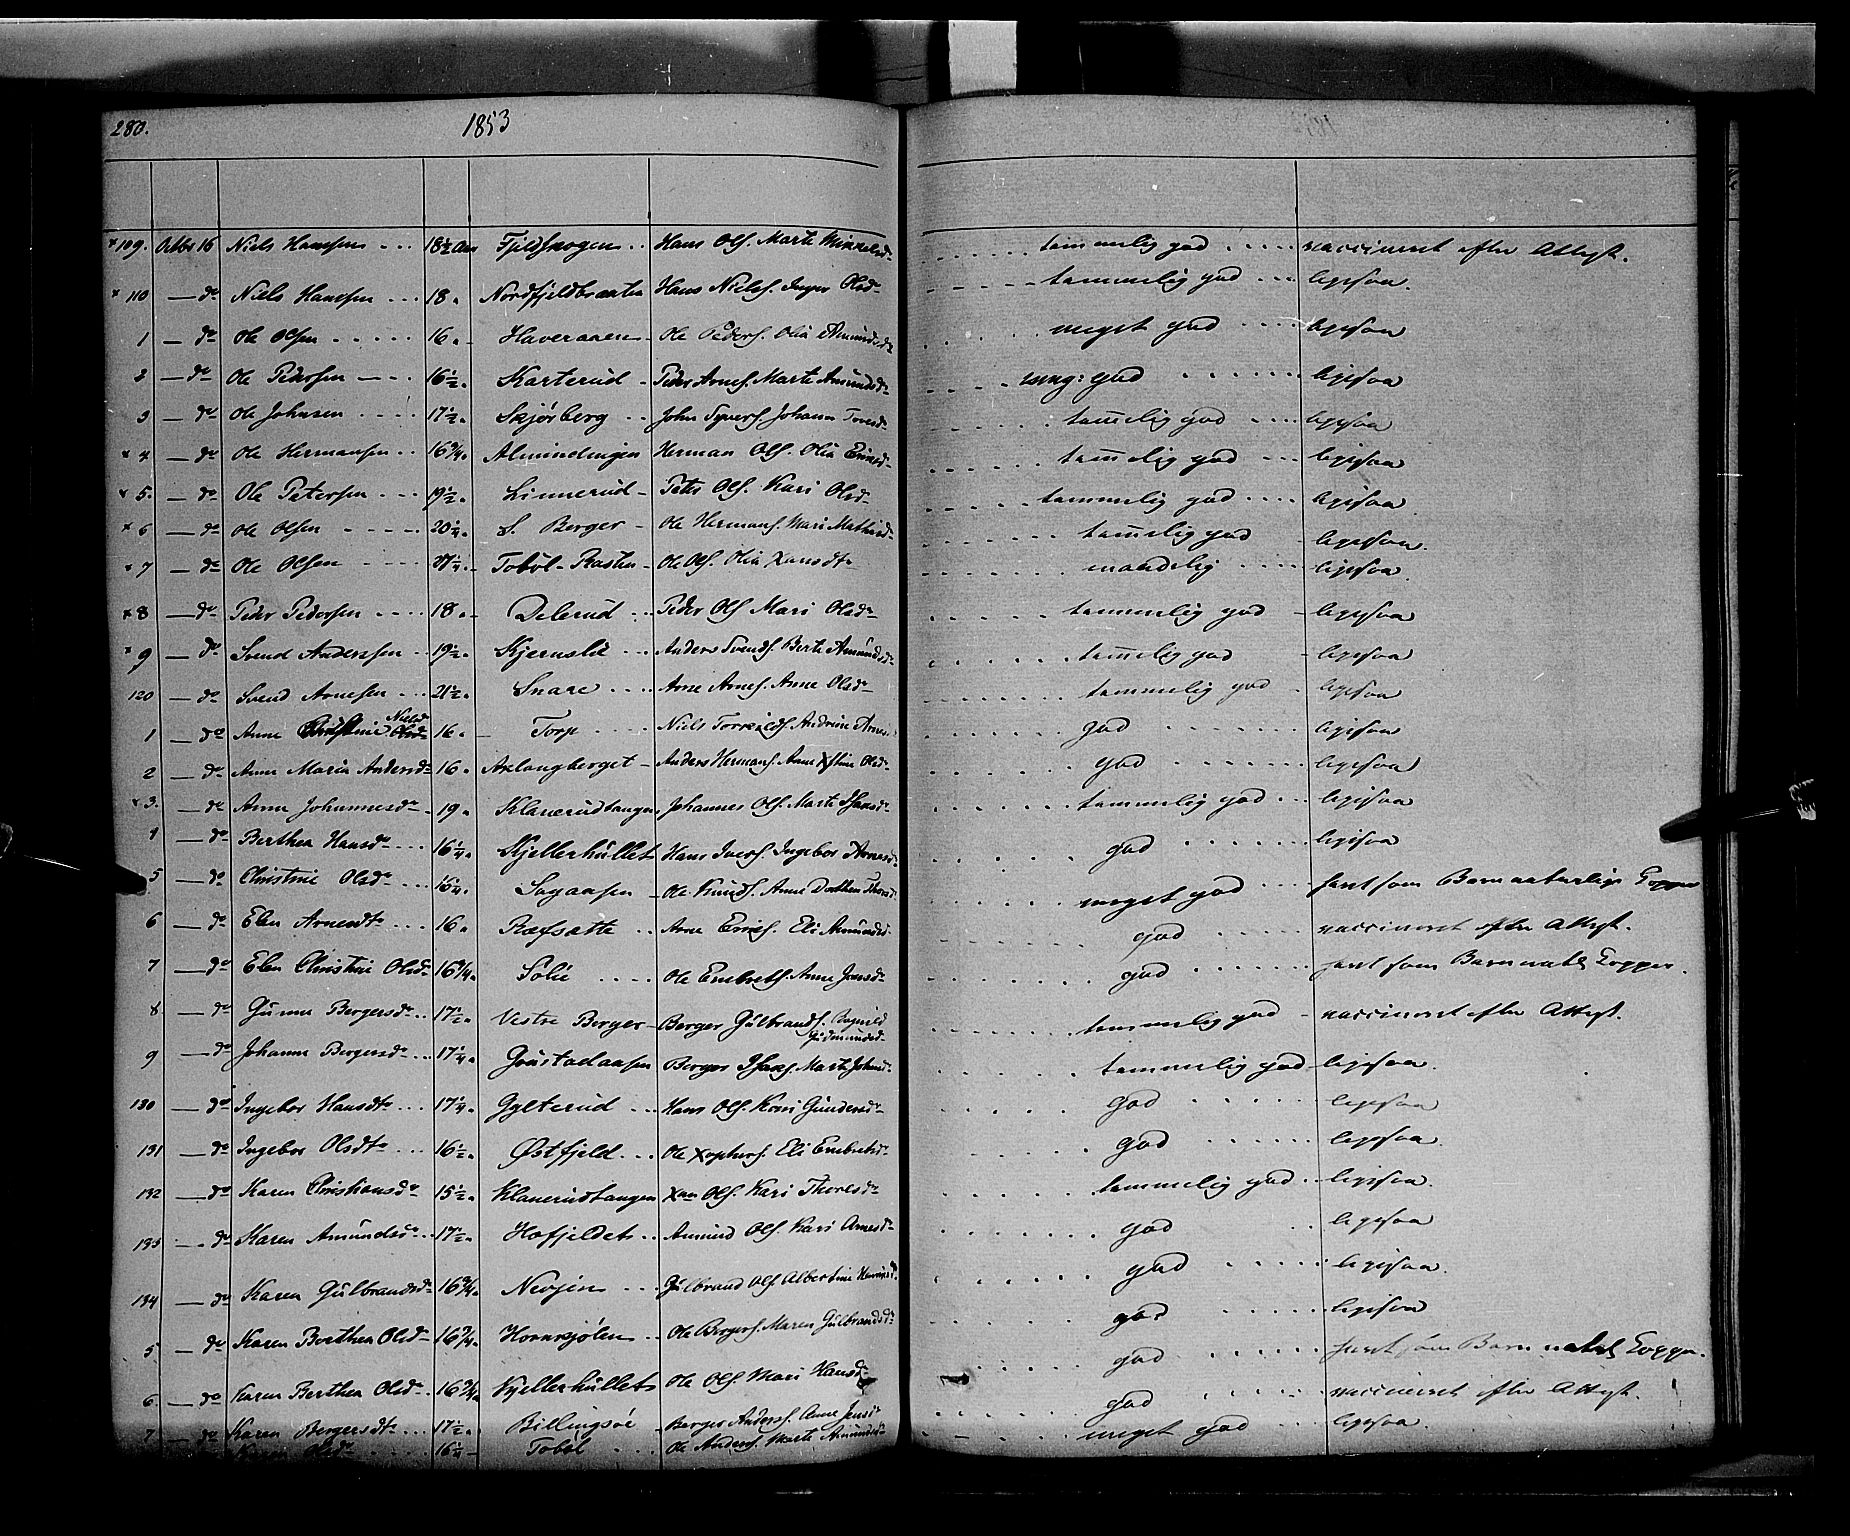 280. 1853
× 109. Octbr 16 Niels Hanssen 18½ Aar Fjeldskogen Hans Ols. Marte Mikkelsdr tammelig god vaccineret efter Attest.
× 110 — do Niels Hanssen 18 Nordfjeldbraaten Hans Niels. Inger Olsdr tammelig god ligesaa.
1 — do Ole Olsen 16 Haveraaen Ole Peders. Olia Amundsdr meget god ligesaa
2 — do Ole Pedersen 16½ Karterud Peder Arnes. Marte Amundsdr meg: god ligesaa
3 — do Ole Johnsen 17½ Skjørberg John Syvers. Johann Toresdr tam̄elig god ligesaa
× 4 — do Ole Hermansen 16¾ Almindingen Herman Ols. Olia Ericsdr tam̄elig god ligesaa
× 5. — do Ole Petersen 19½ Linnerud Peter Ols. Kari Olsdr tammelig god ligesaa
× 6 — do Ole Olsen 20¼ S. Berger Ole Hermans. Mari Mathisdr tam̄elig god ligesaa.
× 7 — do Ole Olsen Tobøl-Plasten Ole Ols. Olia Hansdtr maadelig ligesaa
× 8 — do Peder Pedersen 18 Delerud Peder Ols Mari Olsdr tammelig god ligesaa
× 9 — do Svend Anderssen 19½ Kjernslie Anders Svends. Berte Amundsdr tam̄elig god ligesaa
120 — do Svend Arnesen 21½ Snare Arne Arnes. Anne Olsdr tammelig god ligesaa
1 — do Anne Christine Nielsd 16 Torp Niels Torkilds. Andrine Arnes god ligesaa
2 — do Anne Maria Andersdr 16 Axlangberget Anders Hermans. Anne Xstine Olsdr god ligesaa
× 3. — do Anne Johannesdr 19 Klanerudtangen Johannes Ols. Marte Hansdr tammelig god ligesaa
4 — do Berthea Hansdr 16¼ Kjellerhullet Hans Ivers. Ingebor Arnesdr god ligesaa
5 — do Christine Olsdr 16¼ Sagaasen Ole Knuds. Anne Dorthea Thoresdr meget god havt som Barn naturlige Kopper
6 — do Elen Arnesdtr 16 Ræfsætte Arne Erics. Eli Amundsd god vaccineret efter Attest.
7 — do Elen Christine Olsdr 16¾ Solie Ole Embrets. Anne Jensdr god havt som Barn natl Kopper.
8 — do Gunner Bergersdr 17½ Vestre Berger Berger Gulbrands. Ragnild Gudmundsd tammelig god vaccineret efter Attest.
9 — do Johanne Bergersdr 17¼ Gaustadaasen Berger Hans. Marte Johnsdr tammelig god ligesaa.
130 — do Ingebor Hansdtr 17¼ Gylterud Hans Ols. Kari Gundersdr god ligesaa
131 — do Ingebor Olsdtr 16½ Østfjeld Ole Xophers. Eli Embretsdr god ligesaa.
132 — do Karen Christiansdr 15½ Klanerudtangen Xan Ols. Kari Thoresdr tammelig god ligesaa.
133 — do Karen Amundsdr 17½ Hofjeldet Amund Ols. Kari Arnesdr god ligesaa
134 — do Karen Gulbrandsdr 16¾ Nevjen Gulbrand Ols. Albertine Henriksd god ligesaa.
5 — do Karen Berthea Olsdr 16¾ Hornsjølen Ole Bergers. Maren Gulbrandsdr god ligesaa
6. — do Karen Berthea Olsdr 16¾ Kjellerhullets Ole Ols. Mari Hansdr god havt som Barn natl Kopper.
7 — do Karen Bergersdtr 17½ Billingsøe Berger Anders. Anne Jensdr god vaccineret efter Attest.
Karen Olsdr 16¼ Tobøl Ole Anders. Marte Amundsdr meget god ligesaa